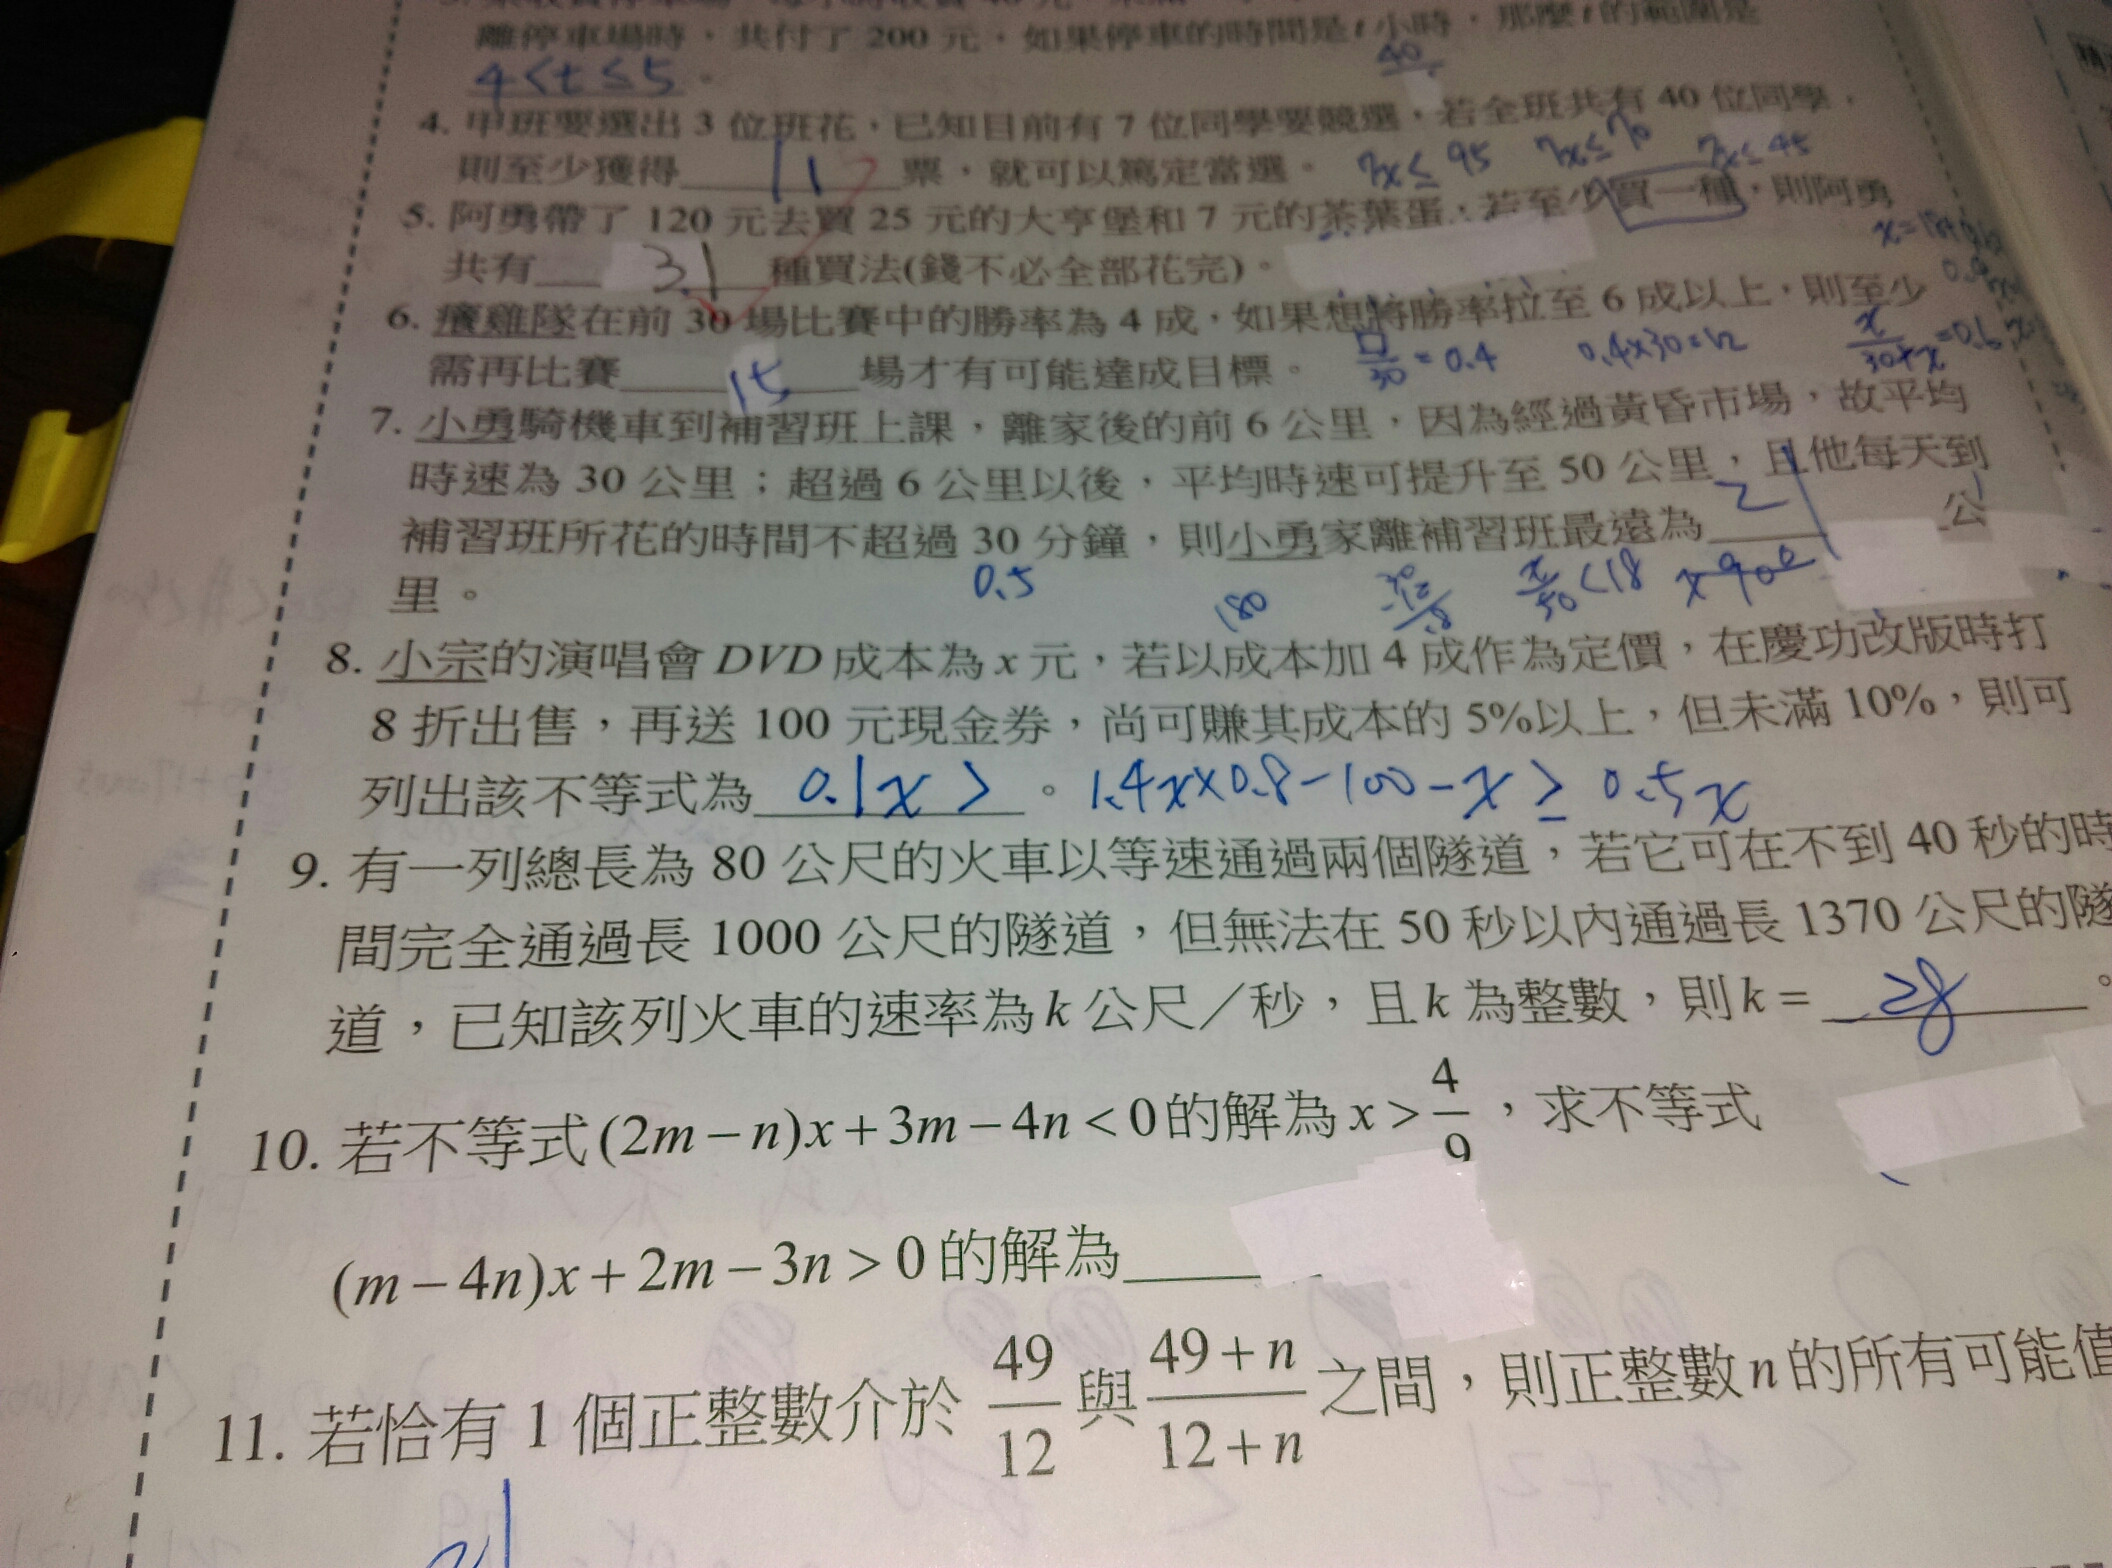 離停車場時，共付了 200 元，如果停車的時間是 t 小時，那麼 t 的範圍是
4<t≤5。
40
4. 甲班要選出 3 位班花，已知目前有 7 位同學要競選，若全班共有 40 位同學，
則至少獲得 11 票，就可以篤定當選。
7x≤95 7x≤70 7x≤45
5. 阿勇帶了 120 元去買 25 元的大亨堡和 7 元的茶葉蛋，若至少買一種，則阿勇
共有 31 種買法(錢不必全部花完)。
6. 癟雞隊在前 30 場比賽中的勝率為 4 成，如果想將勝率拉至 6 成以上，則至少
需再比賽 15 場才有可能達成目標。 □/30=0.4 0.4x30=12
7. 小勇騎機車到補習班上課，離家後的前 6 公里，因為經過黃昏市場，故平均
時速為 30 公里；超過 6 公里以後，平均時速可提升至 50 公里，且他每天到
補習班所花的時間不超過 30 分鐘，則小勇家離補習班最遠為 21 公
里。 0.5 180 x/50<18 x900
8. 小宗的演唱會 DVD 成本為 x 元，若以成本加 4 成作為定價，在慶功改版時打
8 折出售，再送 100 元現金券，尚可賺其成本的 5%以上，但未滿 10%，則可
列出該不等式為 0.1x > 。 1.4x×0.8-100-x ≥ 0.5x
9. 有一列總長為 80 公尺的火車以等速通過兩個隧道，若它可在不到 40 秒的時
間完全通過長 1000 公尺的隧道，但無法在 50 秒以內通過長 1370 公尺的隧
道，已知該列火車的速率為 k 公尺／秒，且 k 為整數，則 k = 28 。
10. 若不等式(2m－n)x＋3m－4n＜0的解為 x＞4/9，求不等式
(m－4n)x＋2m－3n＞0 的解為
11. 若恰有 1 個正整數介於 49/12 與 49＋n/12＋n 之間，則正整數 n 的所有可能值